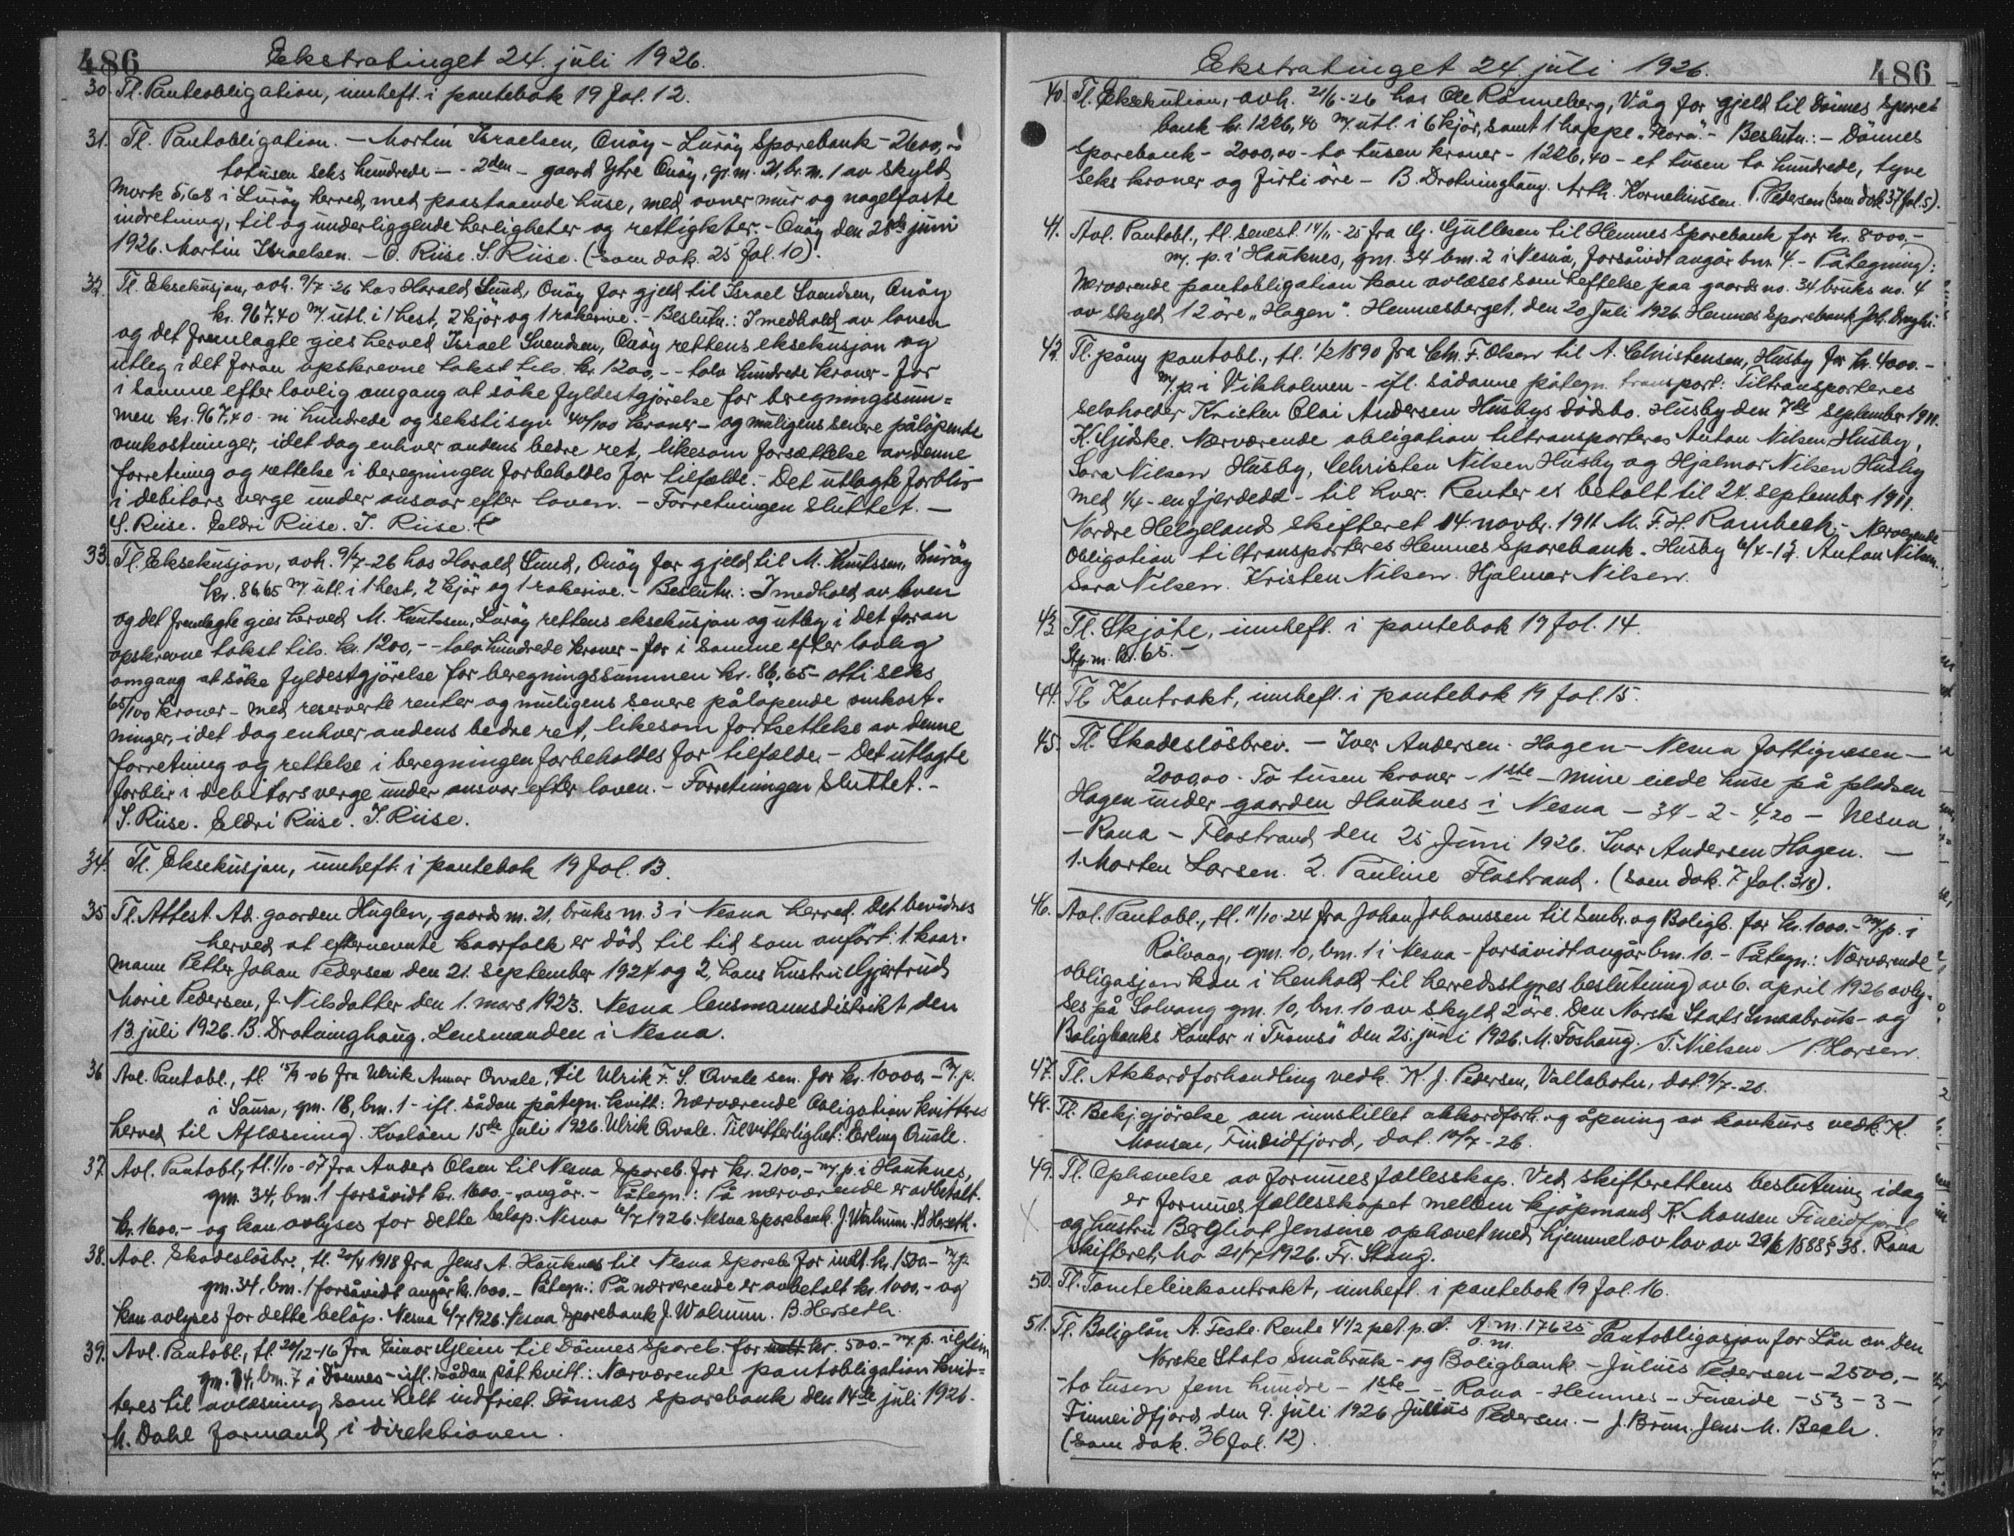 486
Ekstratinget 24. juli 1926.
30. Tl. Panteobligation, innheft. i pantebok 19 fol. 12.
31. Tl. Pantobligation. – Martin Israelsen, Onöy – Luröy Sparebank – 2600,00
totusen seks hundrede – - 2den – gaard Ytre Onöy, gr.nr. br.nr. 1 av skyld
mark 5,68 i Luröy herred, med paastaaende huse, med ovner mur og nagelfaste
indretning, til og underliggende herligheter og rettigheter. – Onöy den 28de juni
1926. Martin Israelsen. – O. Riise. S. Riise. (Som dok. 25 fol. 10).
32. Tl. Eksekusjon, avh. 9/7-26 hos Harald Lund, Onöy for gjeld til Israel Svendsen, Onöy
kr. 967,40 m/ utl. i 1 hest, 2 kjör og 1 rakerive. – Beslutn.: I medhold av loven
og det fremlagte gies herved Israel Svendsen, Onöy rettens eksekusjon og
utleg i det foran opskrevne takst tils. kr. 1200,- - tolv hundrede kroner – for
i samme efter lovlig omgang at söke fyldestgjörelse for beregningssum=
men kr. 967,40 ni hundrede og sekstisyv 40/100 kroner – og muligens senere pålöpende
omkostninger, idet dog enhver andens bedre ret, likesom forsættelse av denne
forretning og rettelse i beregningen forbeholdes for tilfælde. – Det utlagte forblir
i debitors verge under ansvar efter loven. – Forretningen sluttet. –
S. Riise. Eeldri Riise. J. Riise.
33. Tl. Eksekusjon, avh. 9/7-26 hos Harald Lund, Onöy for gjeld til M. Knutssen, Luröy
kr. 86,65 m/ utl. i 1 hest, 2 kjör og 1 rakerive. – Beslutn.: I medhold av loven
og det fremlagte gies herved M. Knutssen, Luröy rettens eksekusjon og utleg i det foran
opskrevne takst tils. kr. 1200,- - tolv hundrede kroner – for i samme efter lovlig
omgang at söke fyldestgjörelse for beregningssummen kr. 86,65 – otti seks
65/100 kroner – med reserverte renter og muligens senere pålöpende omkost-
ninger, idet dog enhver andens bedre ret, likesom fortsettelse av denne
forretning og rettelse i beregningen forbeholdes for tilfælde. – Det utlagte
forblir i debitors verge under ansvar efter loven. – Forretningen sluttet. –
S. Riise. Eldri Riise. J. Riise.
34. Tl. Eksekusjon, innheft. i pantebok 19 fol. 13.
35. Tl. Attest. Ad. gaarden Huglen, gaards nr. 21, bruks nr. 3 i Nesna herred. Det bevidnes
herved at efternevnte kaarfolk er död til tid som anfört: 1. kaar-
mann Petter Johan Pedersen den 21. september 1924 og 2, hans hustru Gjertrud
Marie Pedersen, f. Nilsdatter den 1. mars 1923. Nesna lensmannsdistrikt den
13. juli 1926. B. Drotninghaug. Lensmanden i Nesna.
36. Avl. Pantobl., tl. 06 fra Ulrik Annar Qvale, til Ulrik F. S. Qvale sen. for kr. 10000,- m/ p.
i Saura, gnr. 18, bnr. 1 – ifl. sådan påtegn. kvitt: Nærværende Obligation kvitteres
herved til Aflæsning. Kvalöen 15de Juli 1926. Ulrik Qvale. Til vitterlighet: Erling Qvale.
37. Avl. Pantobl., tl. 1/10-07 fra Anders Olsen til Nesna Spareb. for kr. 2100,- m/ p. i Hauknes,
gnr. 34, bnr. 1 forsåvidt kr. 1600.- angår. – Påtegn.: På nærværende er avbetalt
kr. 1600.- og kan avlyses for dette belöp. Nesna 6/7 1926. Nesna Sparebank. J. Walnum. B Herseth.
38. Avl. Skadeslösbr., tl. 20/4 1918 fra Jens A. Hauknes til Nesna Spareb. for inntl. kr. 1500.- m/ p.
gnr. 34, bnr. 1 forsåvidt angår kr. 1000. – Påtegn.: På nærværende er avbetalt kr. 1000.- og
kan avlyses for dette belöp. Nesna 6/7 1926. Nesna Sparebank J. Walnum. B. Herseth.
39. Avl. Pantobl., tl. 20/12-16 fra Einar Glein til Dönnes Spareb. for kr. 500.- m/ p. i Glein
gnr. 14, bnr. 7 i Dönnes – ifl. sådan påt. kvitt.: Nærværende pantobligation kvit=
teres til avlæsning som helt indfriet. Dönnes sparebank den 14de juli 1926.
M. Dahl formand i direktionen.
Ekstratinget 24. juli 1926.
486
40. Tl. Eksekution, avh. 21/6-26 hos Ole Rönneberg, Våg for gjeld til Dönnes Spare-
bank kr. 1226,40 m/ utl. i 6 kjör, samt 1 hoppe "Flora". – Beslutn.: – Dönnes
Sparebank – 2000,00 – to tusen kroner – 1226,40 – et tusen to hundrede, tyve
seks kroner og firti öre – B. Drotninghaug. Arth. Korneliussen. P. Pedersen (som dok 37 fol. 5).
41. Avl. Pantobl., tl. senest 14/11-25 fra G. Gullesen til Hemnes Sparebank for kr. 8000.-
m/ p. i Hauknes, gnr. 34 bnr. 2 i Nesna, forsåvidt angår bnr. 4. – Påtegning:
Nærværende pantobligation kan avlæses som heftelse paa gaards no. 34 bruks no. 4
av skyld 12 öre "Hagen". Hemnesberget, den 20 Juli 1926 Hemnes Sparebank Joh.
42. Tl. påny pantobl., tl. 1/2 1890 fra Chr. F. Olsen til A. Christensen, Husby for kr. 4000.-
m/ p. i Vikholmen – ifl. sådanne påtegn. transport: Tiltransporteres
selvholder Kristen Olai Andersen Husbys dödsbo. Husby den 7de september 1911.
K. Gjidske. Nærværende obligation tiltransporteres Anton Nilsen Husby,
Sara Nilsen Husby, Christen Nilsen Husby og Hjalmar Nilsen Husby
med 1/4 – en fjerdedel – til hver. Renter er betalt til 24. september 1911.
Nordre Helgeland skifteret 14 novbr. 1911 M. F. H. Rambech. – Nærværende
Obligation tiltransporteres Hemnes Sparebank. Husby Anton Nilsen.
Sara Nilsen. Kristen Nilsen. Hjalmar Nilsen.
43. Tl. Skjöte, innheft. i pantebok 19 fol. 14.
Stp.m. kr. 65. –
44. Tl. Kontrakt, innheft. i pantebok 19 fol. 15.
45. Tl. Skadeslösbrev. – Iver Andersen Hagen – Nesna fattigvesen –
2000,00 – To tusen kroner – 1ste – mine eiede huse på pladsen
Hagen under gaarden Hauknes i Nesna – 34 – 2 – 4,20 – Nesna
– Rana – Flostrand den 25 Juni 1926. Ivar Andersen Hagen. –
1. Morten Larsen. 2. Pauline Flostrand. (som dok. 7 fol. 318).
46. Avl. Pantobl., tl. 11/10-24 fra Johan Johanssen til Småbr. og Boligb. for kr. 1000.- m/ p. i
Rölvaag, gnr. 10, bnr. 1 i Nesna – forsåvidt angår bnr. 10. – Påtegn.: Nærværende
obligasjon kan i henhold til herredsstyres beslutning av 6. april 1926 avly-
ses på Solvang gnr. 10, bnr. 10 av skyld 2 öre. Den Norske Stats Smaabruk- og
Boligbanks Kontor i Tromsö den 25. juni 1926. M. Foshaug / T. Nielsen / P. Larsen.
47. Tl. Akkordforhandling vedk. K. J. Pedersen, Vallabotn, dat. 9/7-26.
48. Tl. Bekjgjörelse om innstillet akkordforh. og åpning av konkurs vedk. K.
Monsen, Finneidfjord, dat. 10/7-26.
49. Tl. Ophævelse av formues fællesskap. Ved skifterettens beslutning idag
er formuesfællesskapet mellem kjöpmand K. Monsen Fineidfjord
og hustru Bergliot Jensine ophævet med hjemmel av lov av 29/6 1888 § 38. Rana
skifteret, Mo 21/7 1926. Fr. Stang.
50. Tl. Tomteleiekontrakt, innheft. i pantebok 19 fol. 16.
51. Tl. Boliglån A. Feste. Rente 4 1/2 pct. p. A. A. nr. 17625 Pantobligasjon for Lån av den
Norske Stats Småbruk- og Boligbank. – Julius Pedersen – 2500,-
- to tusen fem hundre – 1ste – - Rana – Hemnes – Fineide – 53 – 3 –
Finneidfjord den 9. juli 1926 Julius Pedersen. – J. Brun. Jens M. Bech.
(Som dok. 36 fol. 12).